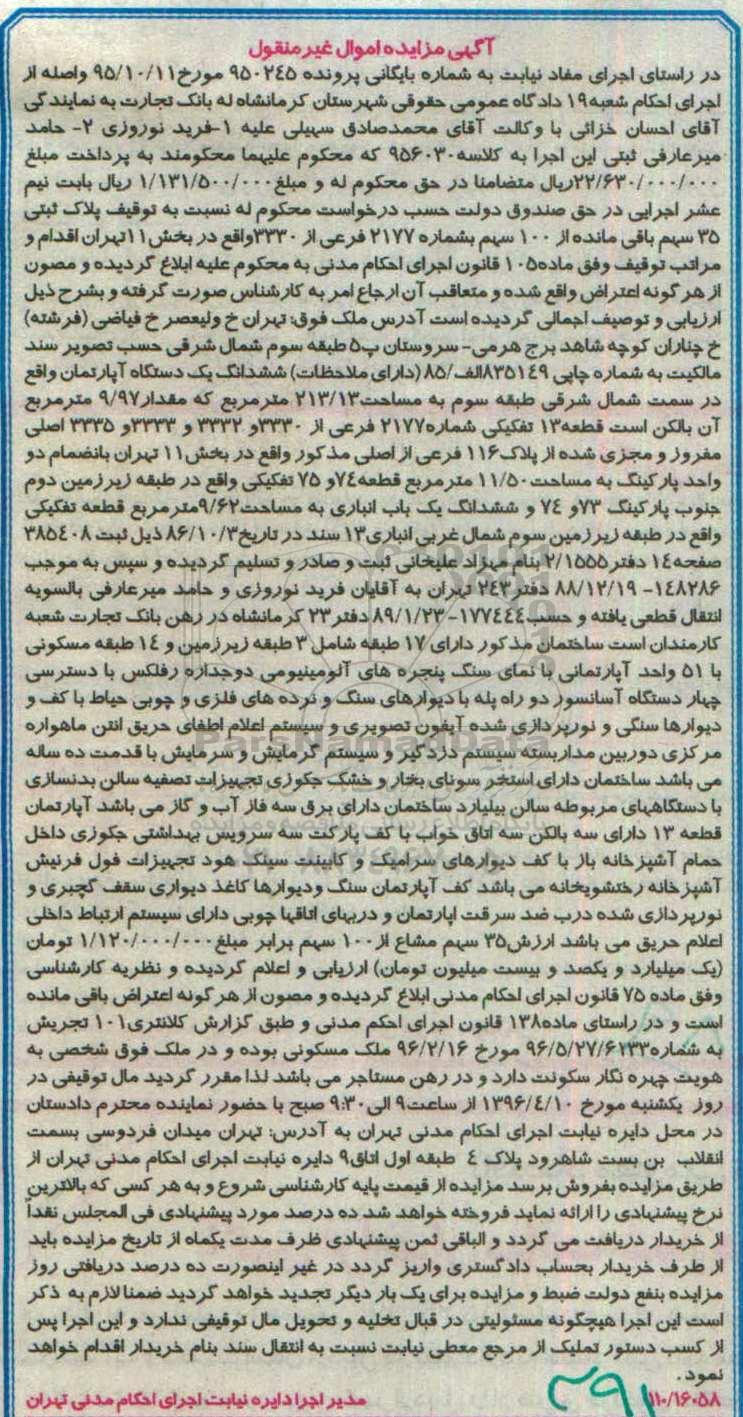 آگهی مزایده اموال غیر منقول
در راستای اجرای مفاد نیابت به شماره بایگانی پرونده ۹۵۰۲۴۵ مورخ ۹۵/۱۰/۱۱ واصله از
اجرای احکام شعبه ۱۹ دادگاه عمومی حقوقی شهرستان کرمانشاه له بانک تجارت به نمایندگی
آقای احسان خزائی با وکالت آقای محمدصادق سهیلی علیه ۱-فرید نوروزی ۲- حامد
میرعارفی ثبتی این اجرا به کلاسه ۹۵۶۰۳۰ که محکوم علیهما محکومند به پرداخت مبلغ
۲۲/۶۳۰/۰۰۰/۰۰۰ریال متضامنا در حق محکوم له و مبلغ ۱/۱۳۱/۵۰۰/۰۰۰ ریال بابت نیم
عشر اجرایی در حق صندوق دولت حسب درخواست محکوم له نسبت به توقیف پلاک ثبتی
۳۵ سهم باقی مانده از ۱۰۰ سهم بشماره ۲۱۷۷ فرعی از ۳۳۳۰واقع در بخش ۱۱تهران اقدام و
مراتب توقیف وفق ماده ۱۰۵ قانون اجرای احکام مدنی به محکوم علیه ابلاغ گردیده و مصون
از هر گونه اعتراض واقع شده و متعاقب آن ارجاع امر به کارشناس صورت گرفته و بشرح ذیل
ارزیابی و توصیف اجمالی گردیده است آدرس ملک فوق: تهران خ ولیعصر خ فیاضی (فرشته)
خ چناران کوچه شاهد برج هرمی- سروستان پ۵ طبقه سوم شمال شرقی حسب تصویر سند
مالکیت به شماره چاپی ۸۳۵۱۴۹الف/۸۵ (دارای ملاحظات) ششدانگ یک دستگاه آپارتمان واقع
در سمت شمال شرقی طبقه سوم به مساحت ۲۱۳/۱۳ مترمربع که مقدار ۹/۹۷ مترمربع
آن بالکن است قطعه ۱۳ تفکیکی شماره ۲۱۷۷ فرعی از ۳۳۳۰و ۳۳۳۲ و ۳۳۳۳و ۳۳۳۵ اصلی
مفروز و مجزی شده از پلاک ۱۱۶ فرعی از اصلی مذکور واقع در بخش ۱۱ تهران بانضمام دو
واحد پارکینگ به مساحت ۱۱/۵۰ مترمربع قطعه ۷۴و ۷۵ تفکیکی واقع در طبقه زیرزمین دوم
جنوب پارکینگ ۷۳و ۷۴ و ششدانگ یک باب انباری به مساحت ۹/۶۲مترمربع قطعه تفکیکی
واقع در طبقه زیرزمین سوم شمال غربی انباری ۱۳ سند در تاریخ ۸۶/۱۰/۳ ذیل ثبت ۳۸۵۴۰۸
صفحه ۱۴ دفتر ۲/۱۵۵۵ بنام مهزاد علیخانی ثبت و صادر و تسلیم گردیده و سپس به موجب
۱۴۸۲۸۶- ۸۸/۱۲/۱۹ دفتر ۲۴۳ تهران به آقایان فرید نوروزی و حامد میرعارفی بالسویه
انتقال قطعی یافته و حسب ۱۷۷۴۴۴-۸۹/۱/۲۳ دفتر ۲۳ کرمانشاه در رهن بانک تجارت شعبه
کارمندان است ساختمان مذکور دارای ۱۷ طبقه شامل ۳ طبقه زیرزمین و ۱۴ طبقه مسکونی
با ۵۱ واحد آپارتمانی با نمای سنگ پنجره های آلومینیومی دوجداره رفلکس با دسترسی
چهار دستگاه آسانسور دو راه پله با دیوارهای سنگ و نرده های فلزی و چوبی حیاط با کف و
دیوارها سنگی و نورپردازی شده آیفون تصویری و سیستم اعلام اطفای حریق انتن ماهواره
مرکزی دوربین مداربسته سیستم دزدگیر و سیستم گرمایش و سرمایش با قدمت ده ساله
می باشد ساختمان دارای استخر سونای بخار و خشک جکوزی تجهیزات تصفیه سالن بدنسازی
با دستگاههای مربوطه سالن بیلیارد ساختمان دارای برق سه فاز آب و گاز می باشد آپارتمان
قطعه ۱۳ دارای سه بالکن سه اتاق خواب با کف پارکت سه سرویس بهداشتی جکوزی داخل
حمام آشپزخانه باز با کف دیوارهای سرامیک و کابینت سینک هود تجهیزات فول فرنیش
آشپزخانه رختشویخانه می باشد کف آپارتمان سنگ ودیوارها کاغذ دیواری سقف گچبری و
نورپردازی شده درب ضد سرقت اپارتمان و دربهای اتاقها چوبی دارای سیستم ارتباط داخلی
اعلام حریق می باشد ارزش ۳۵ سهم مشاع از ۱۰۰ سهم برابر مبلغ ۱/۱۲۰/۰۰۰/۰۰۰ تومان
(یک میلیارد و یکصد و بیست میلیون تومان) ارزیابی و اعلام گردیده و نظریه کارشناسی
وفق ماده ۷۵ قانون اجرای احکام مدنی ابلاغ گردیده و مصون از هر گونه اعتراض باقی مانده
است و در راستای ماده ۱۳۸ قانون اجرای احکم مدنی و طبق گزارش کلانتری ۱۰۱ تجریش
به شماره ۹۶/۵/۲۷/۶۱۳۳ مورخ ۹۶/۲/۱۶ ملک مسکونی بوده و در ملک فوق شخصی به
هویت چهره نگار سکونت دارد و در رهن مستاجر می باشد لذا مقرر گردید مال توقیفی در
روز یکشنبه مورخ ۱۳۹۶/٤/۱۰ از ساعت ۹ الی ۹:۳۰ صبح با حضور نماینده محترم دادستان
در محل دایره نیابت اجرای احکام مدنی تهران به آدرس: تهران میدان فردوسی بسمت
انقلاب بن بست شاهرود پلاک ٤ طبقه اول اتاق ۹ دایره نیابت اجرای احکام مدنی تهران از
طریق مزایده بفروش برسد مزایده از قیمت پایه کارشناسی شروع و به هر کسی که بالاترین
نرخ پیشنهادی را ارائه نماید فروخته خواهد شد ده درصد مورد پیشنهادی فی المجلس نقداً
از خریدار دریافت می گردد و الباقی ثمن پیشنهادی ظرف مدت یکماه از تاریخ مزایده باید
از طرف خریدار بحساب دادگستری واریز گردد در غیر اینصورت ده درصد دریافتی روز
مزایده بنفع دولت ضبط و مزایده برای یک بار دیگر تجدید خواهد گردید ضمنا لازم به ذکر
است این اجرا هیچگونه مسئولیتی در قبال تخلیه و تحویل مال توقیفی ندارد و این اجرا پس
از کسب دستور تملیک از مرجع معطی نیابت نسبت به انتقال سند بنام خریدار اقدام خواهد
نمود.
۱۱۰/۱۶۰۵۸ ۳۹۱ مدیر اجرا دایره نیابت اجرای احکام مدنی تهران